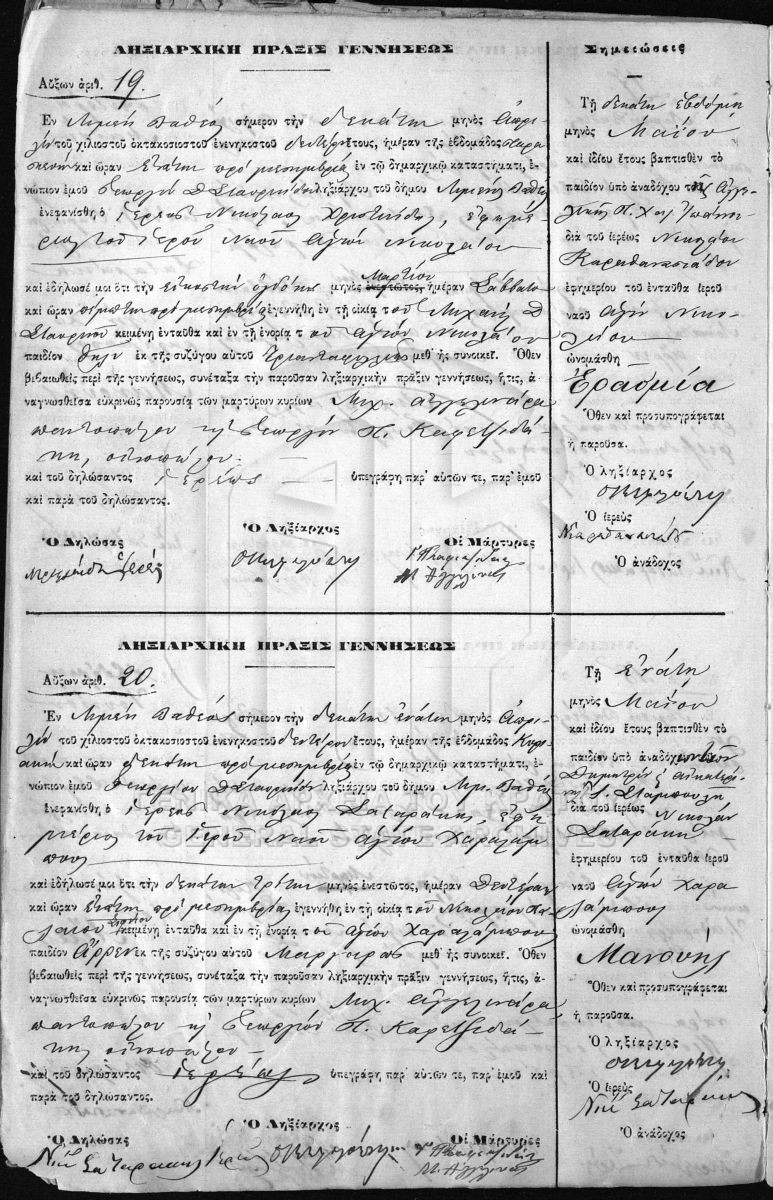 ΛΗΞΙΑΡΧΙΚΗ ΠΡΑΞΙΣ ΓΕΝΝΗΣΕΩΣ
Αὔξων ἀριθ. 19.
Ἐν Λιμένι Βαθέος σήμερον τὴν δεκάτην μηνὸς Ἀπρι-
λίου τοῦ χιλιοστοῦ ὀκτακοσιοστοῦ ἐνενηκοστοῦ δευτέρου ἔτους, ἡμέραν τῆς ἑβδομάδος Παρα
σκευὴν καὶ ὥραν ἐνάτην πρὸ μεσημβρίας ἐν τῷ δημαρχικῷ καταστήματι, ἐ-
νώπιον ἐμοῦ Γεωργίου Δ Σταυρινίδου ληξιάρχου τοῦ δήμου Λιμένος Βαθέος
ἐνεφανίσθη ὁ ἱερεὺς Νικόλαος Χριστινίδης, ἐφημέ-
ριος τοῦ ἱεροῦ Ναοῦ Ἁγίου Νικολάου
καὶ ἐδήλωσέ μοι ὅτι τὴν εἰκοστὴν ὀγδόην μηνὸς Μαρτίου ἡμέραν Σάββατο
καὶ ὥραν πέμπτην πρὸ μεσημβρίας ἐγεννήθη ἐν τῇ οἰκίᾳ τοῦ Μιχαὴλ Δ
Σταυρινοῦ κειμένη ἐνταῦθα καὶ ἐν τῇ ἐνορίᾳ τοῦ ἁγίου Νικολάου
παιδίον θῆλυ ἐκ τῆς συζύγου αὐτοῦ Τριανταφυλλιᾶς μεθ᾽ ἧς συνοικεῖ. Ὅθεν
βεβαιωθεὶς περὶ τῆς γεννήσεως, συνέταξα τὴν παροῦσαν ληξιαρχικὴν πρᾶξιν γεννήσεως, ἥτις, ἀ-
ναγνωσθεῖσα εὐκρινῶς παρουσίᾳ τῶν μαρτύρων κυρίων Μιχ. Ἀγγελινάρα
παντοπώλου καὶ Γεωργίου Π. Καρετζιδά-
κη, οἰνοπώλου
καὶ τοῦ δηλώσαντος ἱερέως ὑπεγράφη παρ᾽ αὐτῶν τε, παρ᾽ ἐμοῦ
καὶ παρὰ τοῦ δηλώσαντος.
Ὁ Δηλώσας Ὁ Ληξίαρχος Οἱ Μάρτυρες
Σημειώσεις
Τῇ δεκάτῃ ἑβδόμῃ
μηνὸς Μαΐου
καὶ ἰδίου ἔτους βαπτισθὲν τὸ
παιδίον ὑπὸ ἀναδόχου τῆς Ἀγγε-
λικῆς Π. Χατζ Ἰωάννου
διὰ τοῦ ἱερέως Νικολάου
Καραθανασιάδου
ἐφημερίου τοῦ ἐνταῦθα ἱεροῦ
ναοῦ Ἁγίου Νικο-
λάου
ὠνομάσθη
Ἐρασμία
Ὅθεν καὶ προσυπογράφεται
ἡ παροῦσα.
Ὁ ληξίαρχος
Ὁ ἱερεὺς
Ὁ ἀνάδοχος
ΛΗΞΙΑΡΧΙΚΗ ΠΡΑΞΙΣ ΓΕΝΝΗΣΕΩΣ
Αὔξων ἀριθ. 20.
Ἐν Λιμένι Βαθέος σήμερον τὴν δεκάτην ἐνάτην μηνὸς Ἀπρι-
λίου τοῦ χιλιοστοῦ ὀκτακοσιοστοῦ ἐνενηκοστοῦ δευτέρου ἔτους, ἡμέραν τῆς ἑβδομάδος Κυρι-
ακὴν καὶ ὥραν δεκάτην πρὸ μεσημβρίας ἐν τῷ δημαρχικῷ καταστήματι, ἐ-
νώπιον ἐμοῦ Γεωργίου Δ Σταυρινίδου ληξιάρχου τοῦ δήμου Λιμ. Βαθέος
ἐνεφανίσθη ὁ ἱερεὺς Νικόλαος Σαταράκης, ἐφη
μέριος τοῦ ἱεροῦ Ναοῦ ἁγίου Χαραλάμ
πους
καὶ ἐδήλωσέ μοι ὅτι τὴν δεκάτην τρίτην μηνὸς ἐνεστῶτος, ἡμέραν Δευτέραν
καὶ ὥραν ἑβδόμην πρὸ μεσημβρίας ἐγεννήθη ἐν τῇ οἰκίᾳ τοῦ Νικολάου
κειμένη ἐνταῦθα καὶ ἐν τῇ ἐνορίᾳ τοῦ ἁγίου Χαραλάμπους
παιδίον ἄρρεν ἐκ τῆς συζύγου αὐτοῦ Μαργαρῶς μεθ᾽ ἧς συνοικεῖ. Ὅθεν
βεβαιωθεὶς περὶ τῆς γεννήσεως, συνέταξα τὴν παροῦσαν ληξιαρχικὴν πρᾶξιν γεννήσεως, ἥτις, ἀ-
ναγνωσθεῖσα εὐκρινῶς παρουσίᾳ τῶν μαρτύρων κυρίων Μιχ. Ἀγγελινάρα
παντοπώλου καὶ Γεωργίου Π. Καρετζιδά-
κη οἰνοπώλου
καὶ τοῦ δηλώσαντος ἱερέως ὑπεγράφη, παρ᾽ αὐτῶν τε, παρ᾽ ἐμοῦ καὶ
παρὰ τοῦ δηλώσαντος.
Ὁ Δηλώσας Ὁ Ληξίαρχος Οἱ Μάρτυρες
Νικ Σαταράκης ἱερεὺς
Τῇ ἐνάτῃ
μηνὸς Μαΐου
καὶ ἰδίου ἔτους βαπτισθὲν τὸ
παιδίον ὑπὸ ἀναδόχου τῶν
Δημητρίου & Αἰκατερί-
νης Γ. Σταμπουλῆ
διὰ τοῦ ἱερέως Νικολάου
Σαταράκη
ἐφημερίου τοῦ ἐνταῦθα ἱεροῦ
ναοῦ Ἁγίου Χαρα
λάμπους
ὠνομάσθη
Μανουὴλ
Ὅθεν καὶ προσυπογράφεται
ἡ παροῦσα.
Ὁ ληξίαρχος
Ὁ ἱερεὺς
Νικ Σαταράκης
Ὁ ἀνάδοχος